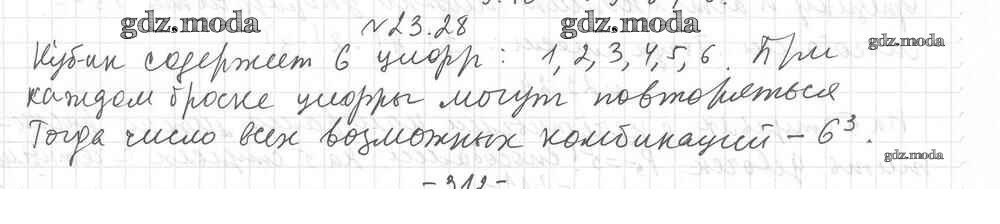 gdz.moda №23.28 gdz.moda
Кубик содержит 6 цифр: 1, 2, 3, 4, 5, 6. При gdz.moda
каждом броске цифры могут повторяться
Тогда число всех возможных комбинаций – 6³.
gdz.moda